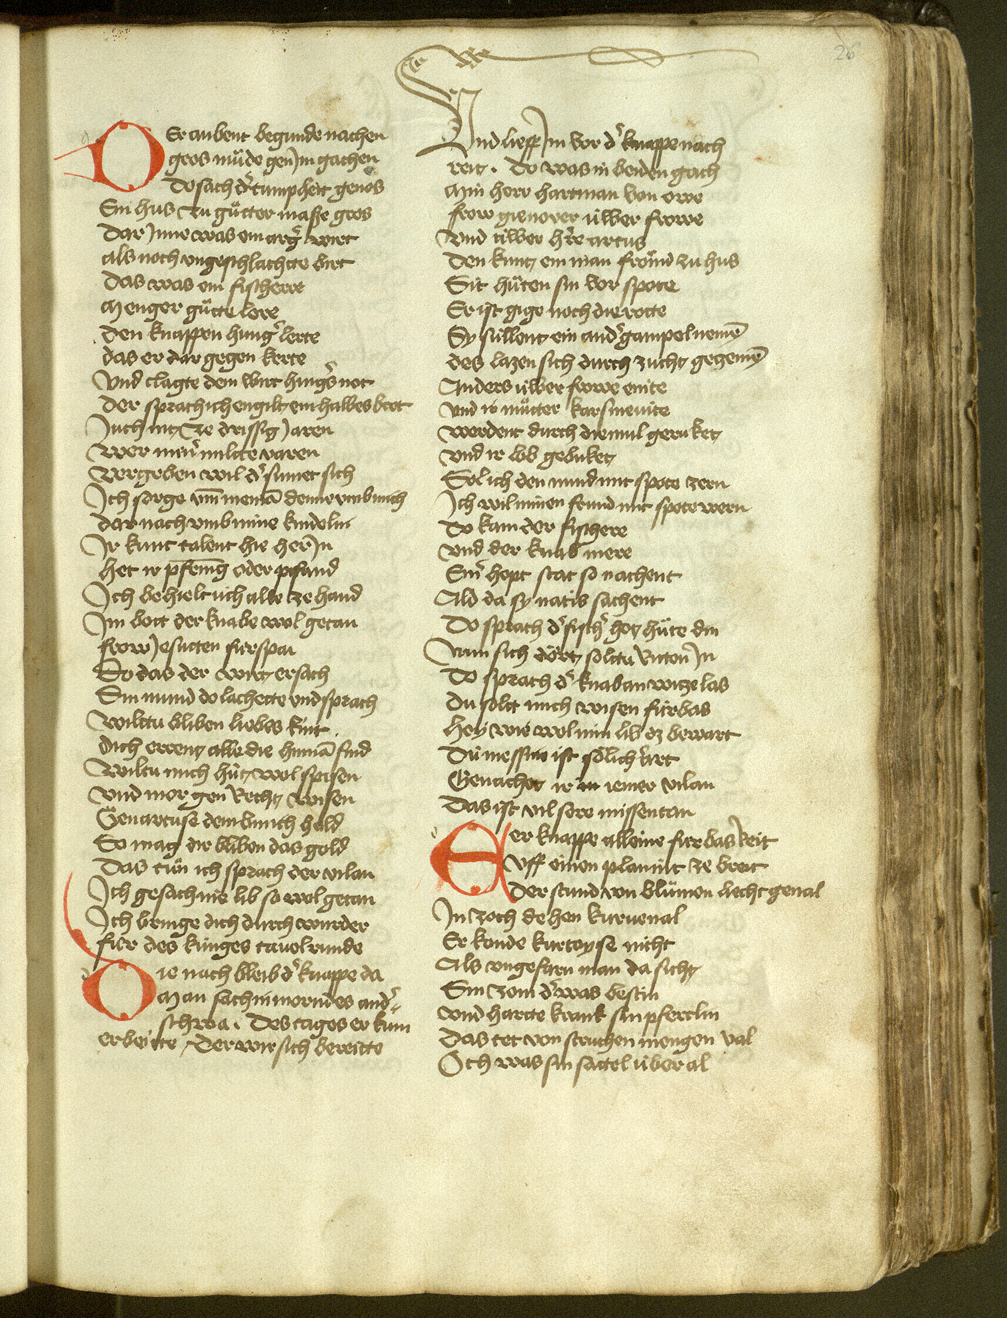 26
Er aubent begunde nachen
gros müde gen Im gachen
Do sach d' tumpheit genos
Ein hus zu gütter maße gros
Dar Inne was ein arg' wirt
als noch vngeschlachtte birt
Das was ein fischere
Menger gütte lere
Den knappen hung' lerte
das er dar gegen kerte
Vnd clagte dem wirt hung's not
Der sprach ich engilt ein halbes brot
Iuch nit ze drissig Jaren
Wer miner milte varen
Vergeben wil d' sumet sich
Ich sorge vm̄ nieman denne vmb mich
dar nach vmb mine kindelin
Ir kunt talent hie her In
Het ir pfening oder pfand
Ich behielt uch alle ze hand
Im bott der knabe wol getan
frow Jesutten fürspan
Do das der wirt ersach
Sin mund do lachette vnd sprach
Wilttu bliben liebes kint
Dich erent alle die hinnā sind
Wiltu mich hüt wol spisen
Vnd morgen Recht wisen
Gen artuse dem bin ich hold
So mag dir bliben das gold
Das tün ich sprach der vilan
Ich gesach nie lib so wol getan
Ich bringe dich durch wunder
für des künges tauelrunde
Die nach bleib d' knappe da
Man sach in morndes and'-
schwa. Des tages er kum
erbeitte / Der wirt sich bereitte
Vnd lieff Im vor d' knappe nach
reit. Do was in beiden gach
Min herr hartman von owe
frow gienover üwer frowe
Vnd üwer h're artus
Den kunt ein man frömd zu hus
Bit hüten sin vor spote
Er ist gige noch die rotte
Sy süllent ein and' gampel nemē
des lazen sich durch zucht gezemē
Anders üwer frowe enite
vnd ir mütter karsinefite
werdent durch die mul geruket
vnd ir lib gebuket
Sol ich den mund mit spote zern
Ich wil minen frund mit spote wern
Do kam der fischere
vnd der knab mere
Ein' hopt stat so nachent
Ald da sy nantis sachent
Do sprach d' fisch' got hüte din
Num sich dört soltu Riten In
Do sprach d' knab an witze las
Du solt mich wisen fürbas
Hey wie wol min lib ez bewart
Dü messnie ist sölich' art
Genachet ir iemer vilan
Das ist vil sere missentan
Der knappe alleine fürbas Reit
Vff einen plan nit ze breit
Der stund von blümen liecht gemal
In zoch dehen kuruenal
Er konde kurtoyse nicht
Als vngefarn man da sicht
Sin zom d' was bestin
Vnd hartte krank sin pferetlin
Das tet von struchen mengen val
Och was sin sattel über al